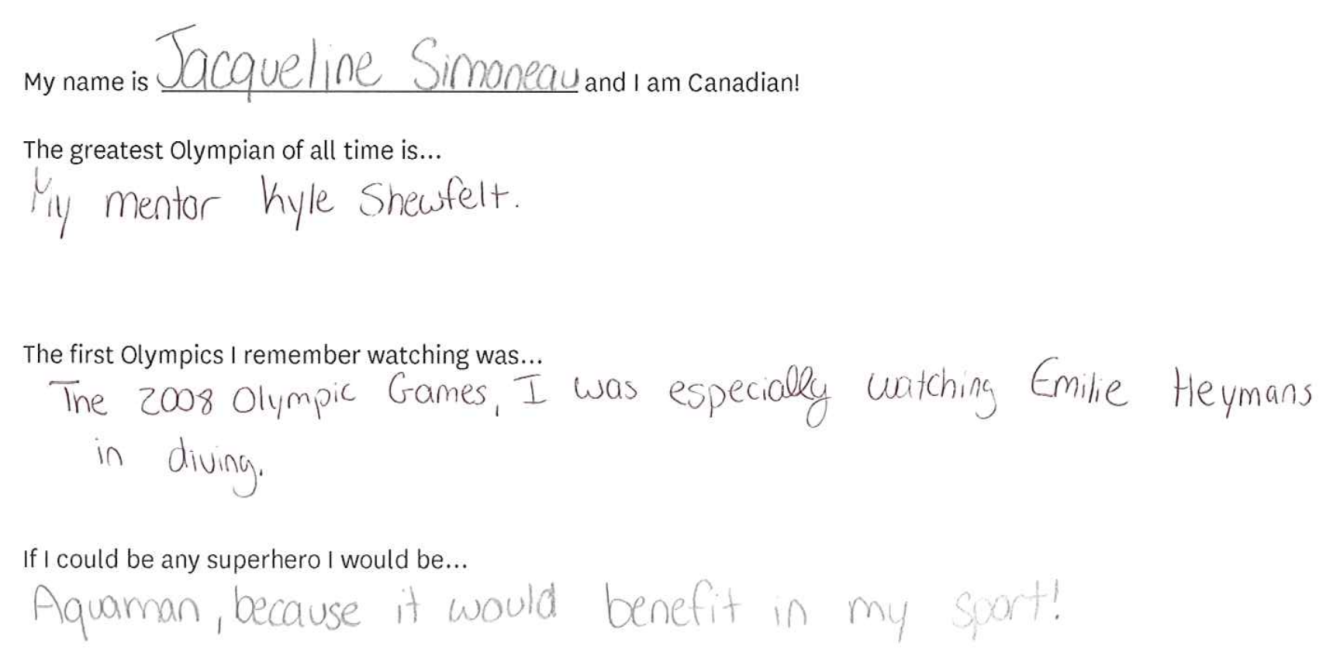 My name is Jacqueline Simoneau and I am Canadian!
The greatest Olympian of all time is...
My mentor Kyle Shewfelt.
The first Olympics I remember watching was...
The 2008 Olympic Games, I was especially watching Emilie Heymans
in diving.
If I could be any superhero I would be...
Aquaman, because it would benefit in my sport!